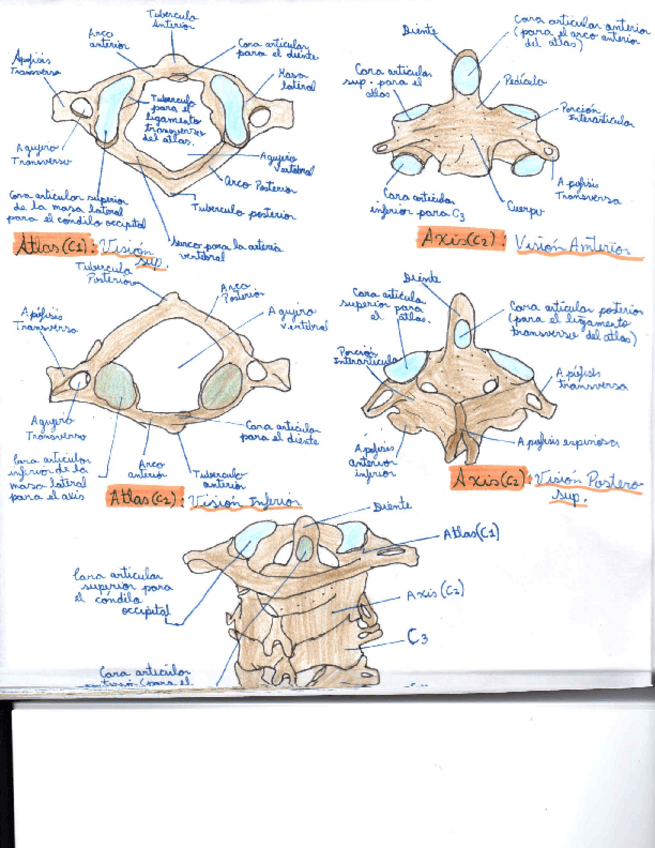 Tuberculo
Anterior
Arco
anterior
Cara articular
para el diente
Apófisis
Transversa
Masa
lateral
Tuberculo
para el
ligamento
transverso
del atlas.
Agujero
Transverso
Agujero
vertebral
Arco Posterior
Cara articular superior
de la masa lateral
para el cóndilo occipital
Tuberculo posterior
surco para la arteria
vertebral
Atlas(C1): Visión
sup.
Diente
Cara articular anterior
(para el arco anterior
del atlas)
Cara articular
sup. para el
atlas
Pedículo
Porción
Interarticular
Apófisis
Transversa
Cara articular
inferior para C3
Cuerpo
Axis(C2): Visión Anterior
Tuberculo
Posterior
Arco
Posterior
Agujero
Vertebral
Apófisis
Transversa
Agujero
Transverso
Cara articular
para el diente
Cara articular
inferior de la
masa lateral
para el axis
Arco
anterior
Tuberculo
anterior
Atlas(C2): Visión Inferior
Diente
Cara articular
superior para
el atlas.
Cara articular posterior
(para el ligamento
transverso del atlas)
Porción
Interarticular
Apófisis
transversa
Apófisis
anterior
inferior
Apófisis espinosa
Axis(C2): Visión Postero
sup.
Diente
Atlas(C1)
Cara articular
superior para
el cóndilo
occipital
Axis(C2)
C3
Cara articular
(para el